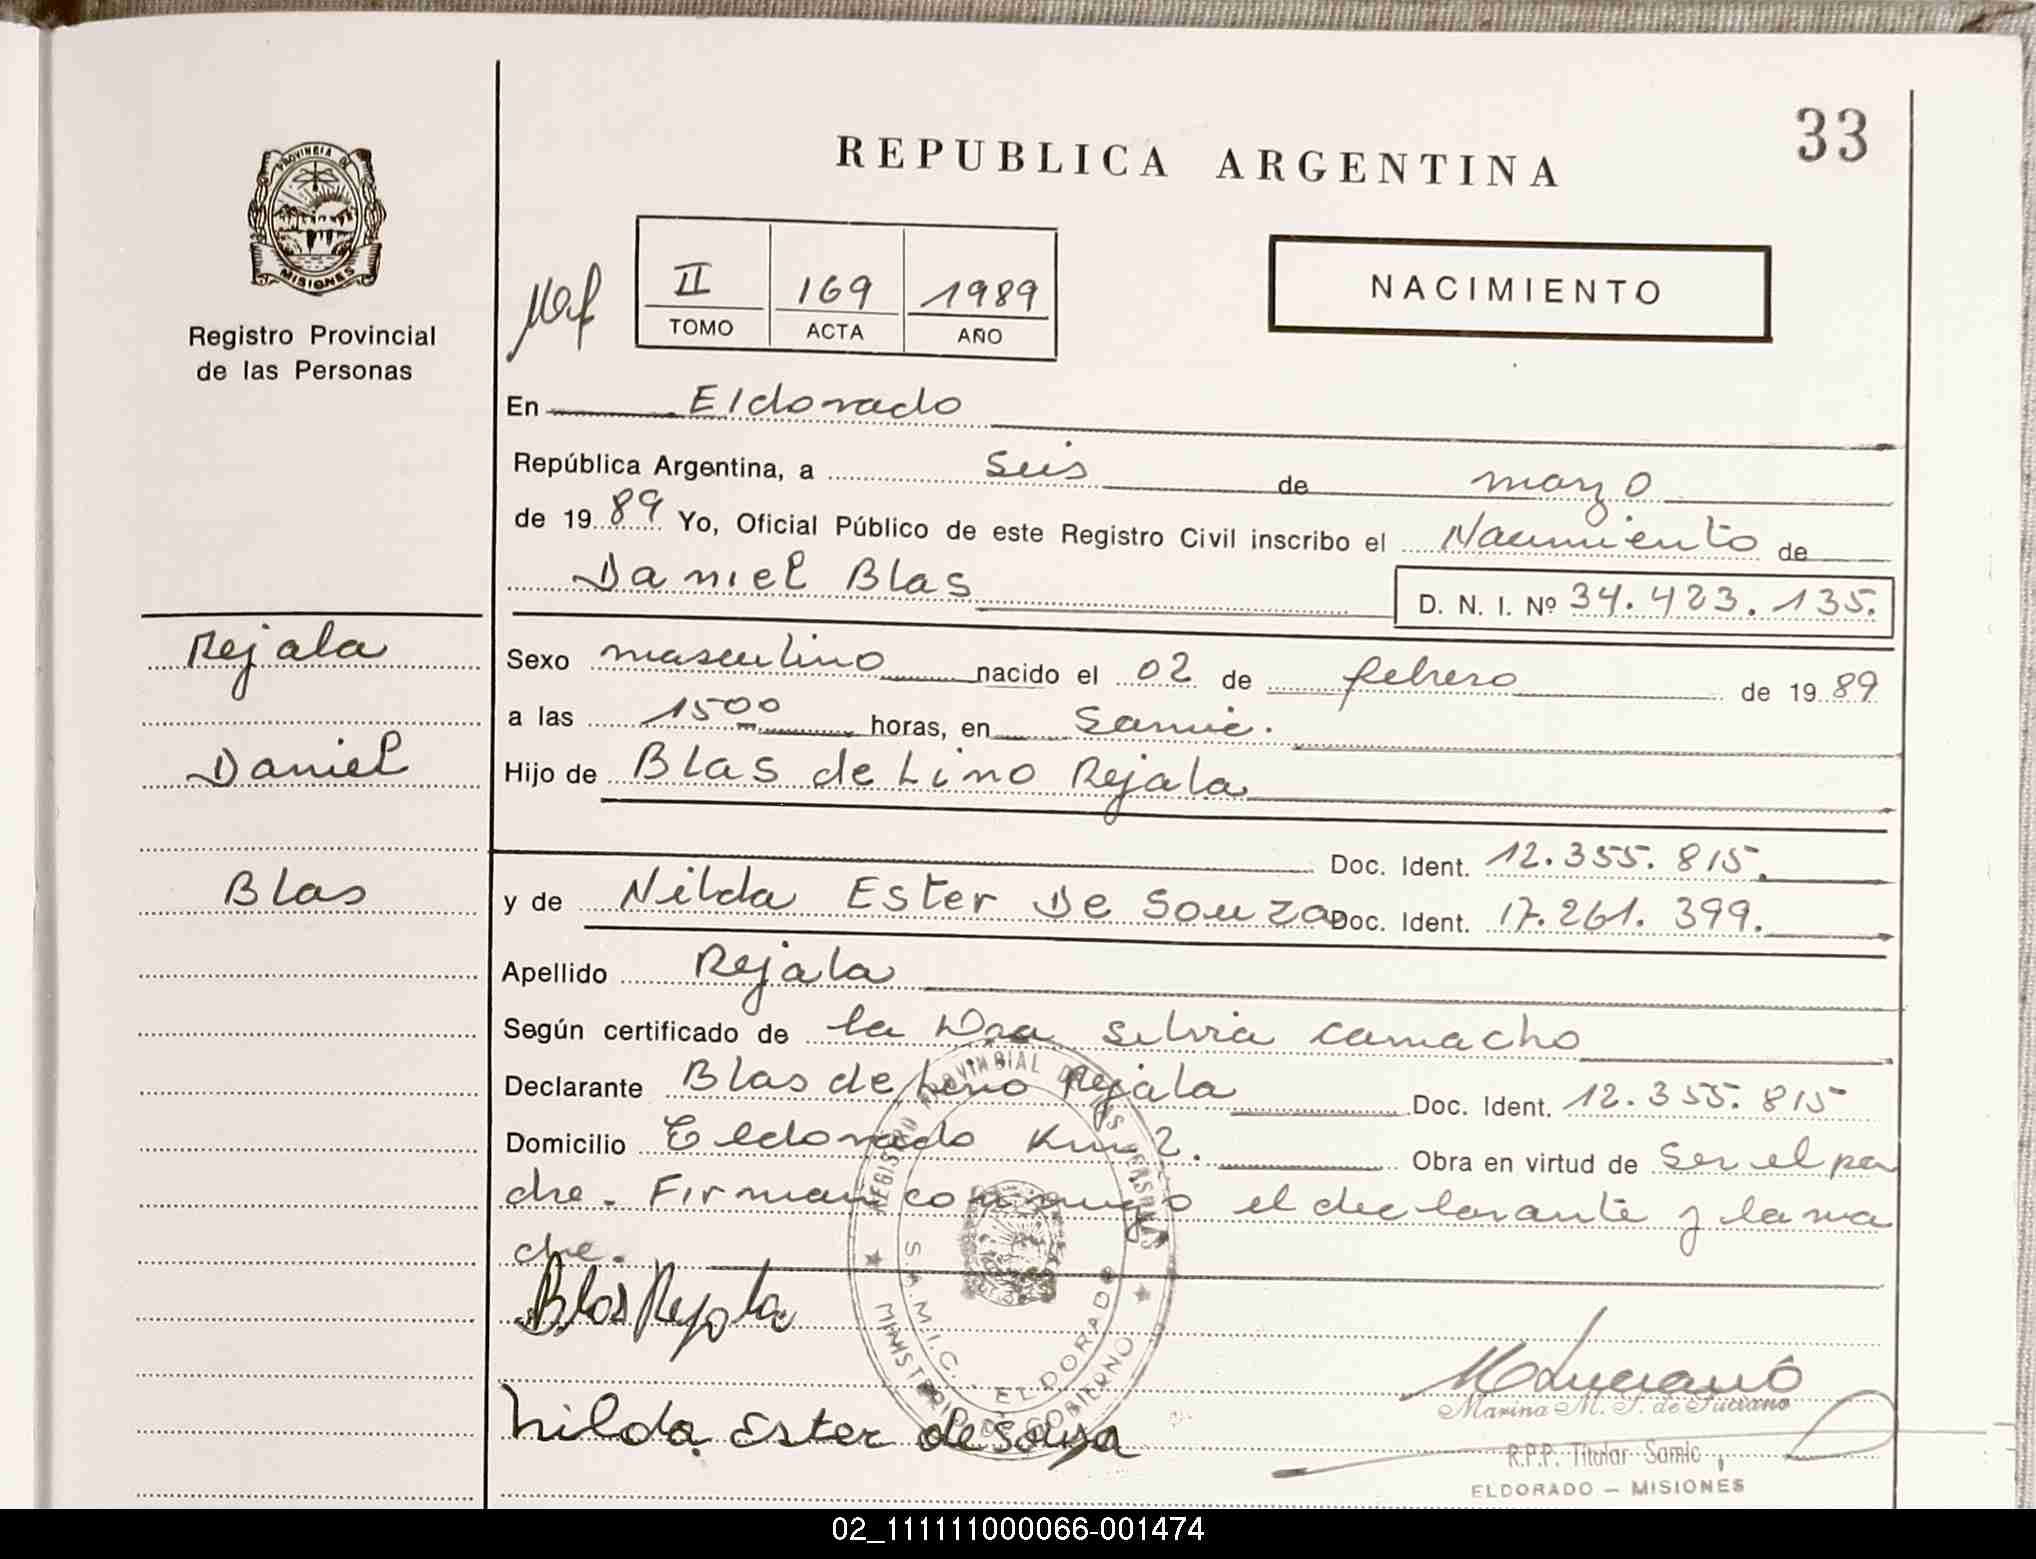 33
REPUBLICA ARGENTINA
PROVINCIA DE
MISIONES
Registro Provincial
de las Personas
II 169 1989
TOMO ACTA AÑO
NACIMIENTO
En Eldorado
República Argentina, a seis de marzo
de 1989 Yo, Oficial Público de este Registro Civil inscribo el Nacimiento de
Daniel Blas D. N. I. Nº 34.423.135.
Rejala
Daniel
Blas
Sexo masculino nacido el 02 de febrero de 1989
a las 1500 horas, en Samic.
Hijo de Blas de Lino Rejala
Doc. Ident. 12.355.815.
y de Nilda Ester De Souza Doc. Ident. 17.261.399.
Apellido Rejala
Según certificado de la Dra Silvia Camacho
Declarante Blas de Lino Rejala Doc. Ident. 12.355.815
Domicilio Eldorado Km 2. Obra en virtud de ser el pa
dre. Firman conmigo el declarante y la ma
dre.
Blas Rejala
Nilda Ester de Souza
REGISTRO PROVINCIAL DE LAS PERSONAS
S.A.M.I.C. ELDORADO
MINISTERIO DE GOBIERNO
Marina M. de Luciano
R.P.P. Titular Samic
ELDORADO — MISIONES
02_111111000066-001474